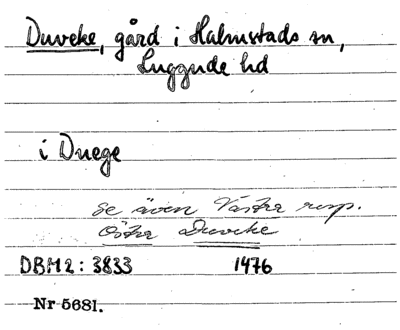 Duveke, gård i Halmstads sn,
Luggude hd
i Duege
se även Västra resp.
Östra Duveke
DBM2: 3833 1476
Nr 5681.